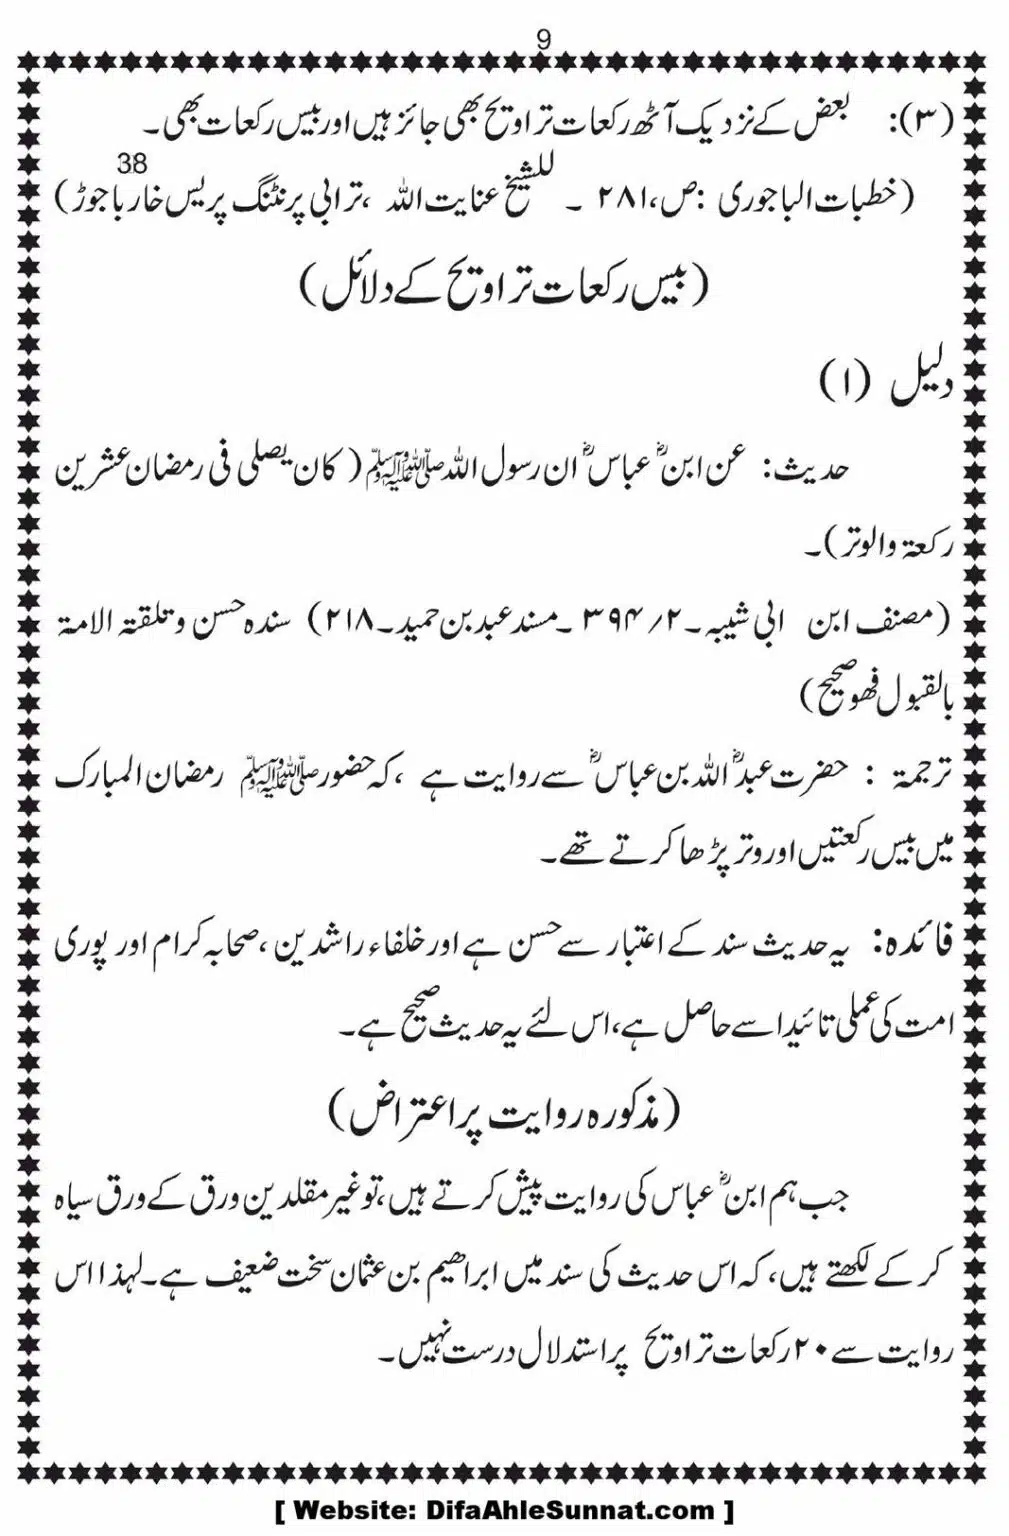 9
(۳): بعض کے نزدیک آٹھ رکعات تراویح بھی جائز ہیں اور بیس رکعات بھی۔
38
(خطبات الباجوری :ص،۲۸۱ ۔ للشیخ عنایت اللہ ،ترابی پرنٹنگ پریس خار باجوڑ)
(بیس رکعات تراویح کے دلائل)
دلیل (۱)
حدیث: عن ابنؓ عباسؓ ان رسول اللہ ﷺ ( کان یصلی فی رمضان عشرین
رکعۃ والوتر)۔
(مصنف ابن ابی شیبہ۔۲/ ۳۹۴ ۔مسند عبد بن حمید۔۲۱۸) سندہ حسن و تلقتہ الامۃ
بالقبول فھو صحیح)
ترجمۃ : حضرت عبدؓ اللہ بن عباسؓ سے روایت ہے ،کہ حضور ﷺ رمضان المبارک
میں بیس رکعتیں اور وتر پڑھا کرتے تھے۔
فائدہ: یہ حدیث سند کے اعتبار سے حسن ہے اور خلفاء راشدین ،صحابہ کرام اور پوری
امت کی عملی تائید اسے حاصل ہے،اس لئے یہ حدیث صحیح ہے۔
(مذکورہ روایت پر اعتراض)
جب ہم ابنؓ عباس کی روایت پیش کرتے ہیں،تو غیر مقلدین ورق کے ورق سیاہ
کر کے لکھتے ہیں، کہ اس حدیث کی سند میں ابراھیم بن عثمان سخت ضعیف ہے۔لہذا اس
روایت سے ۲۰ رکعات تراویح پر استدلال درست نہیں۔
[ Website: DifaAhleSunnat.com ]